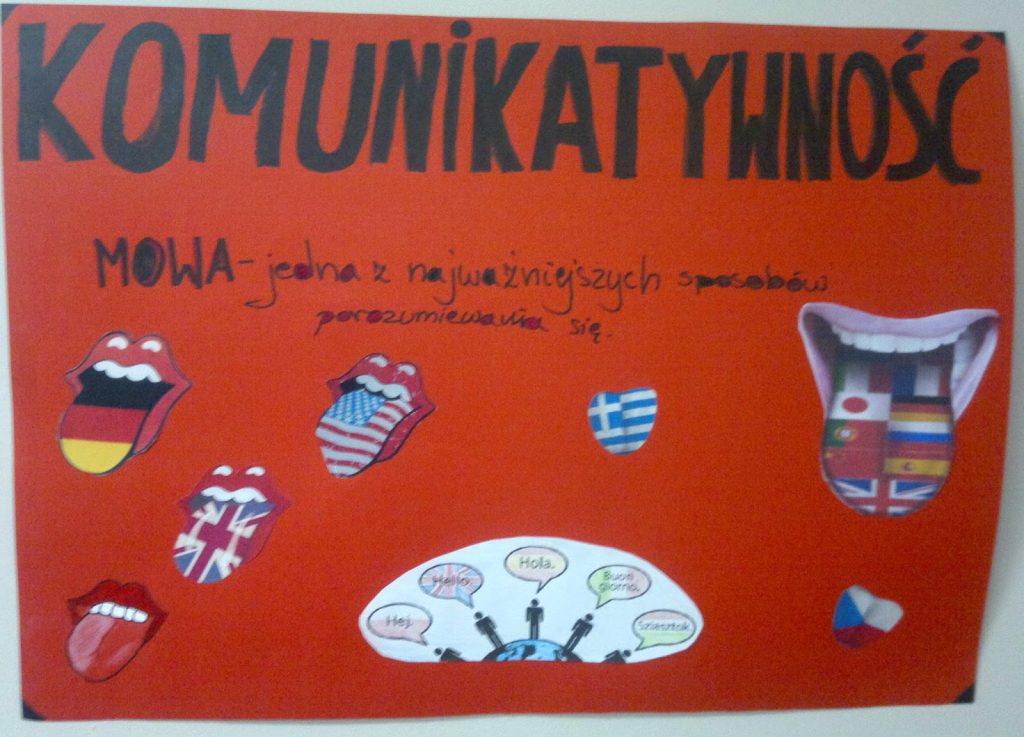 KOMUNIKATYWNOŚĆ
MOWA - jedna z najważniejszych sposobów
porozumiewania się.
Hej.
Hello.
Hola.
Buon
giorno.
Sziasztok